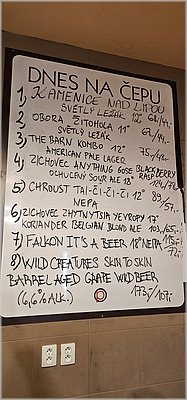 DNES NA ČEPU
1) KAMENICE NAD LIPOU
SVĚTLÝ LEŽÁK 12° 68/44,-
2) OBORA ŽITOHOLA 11°
SVĚTLÝ LEŽÁK 62/41,-
3) THE BARN KOMBO 12°
AMERICAN PALE LAGER 75/48,-
4) ZICHOVEC ANYTHING GOSE BLACKBERRY
RASP
OCHUCENÝ SOUR ALE 18° 124/78,-
5) CHROUST TAI-ČI-ČI-ČI 12° 89/
NEPA 57,-
6) ZICHOVEC ZHYTNYTSIA YEVROPY 17°
KORIANDER BELGIAN BLOND ALE 103/65,-
7) FALKON IT'S A BEER 18° NEIPA 115,-
72,-
8) WILD CREATURES SKIN TO SKIN
BARREL AGED GRAPE WILD BEER
(6,6% ALK.) 173,-/107,-